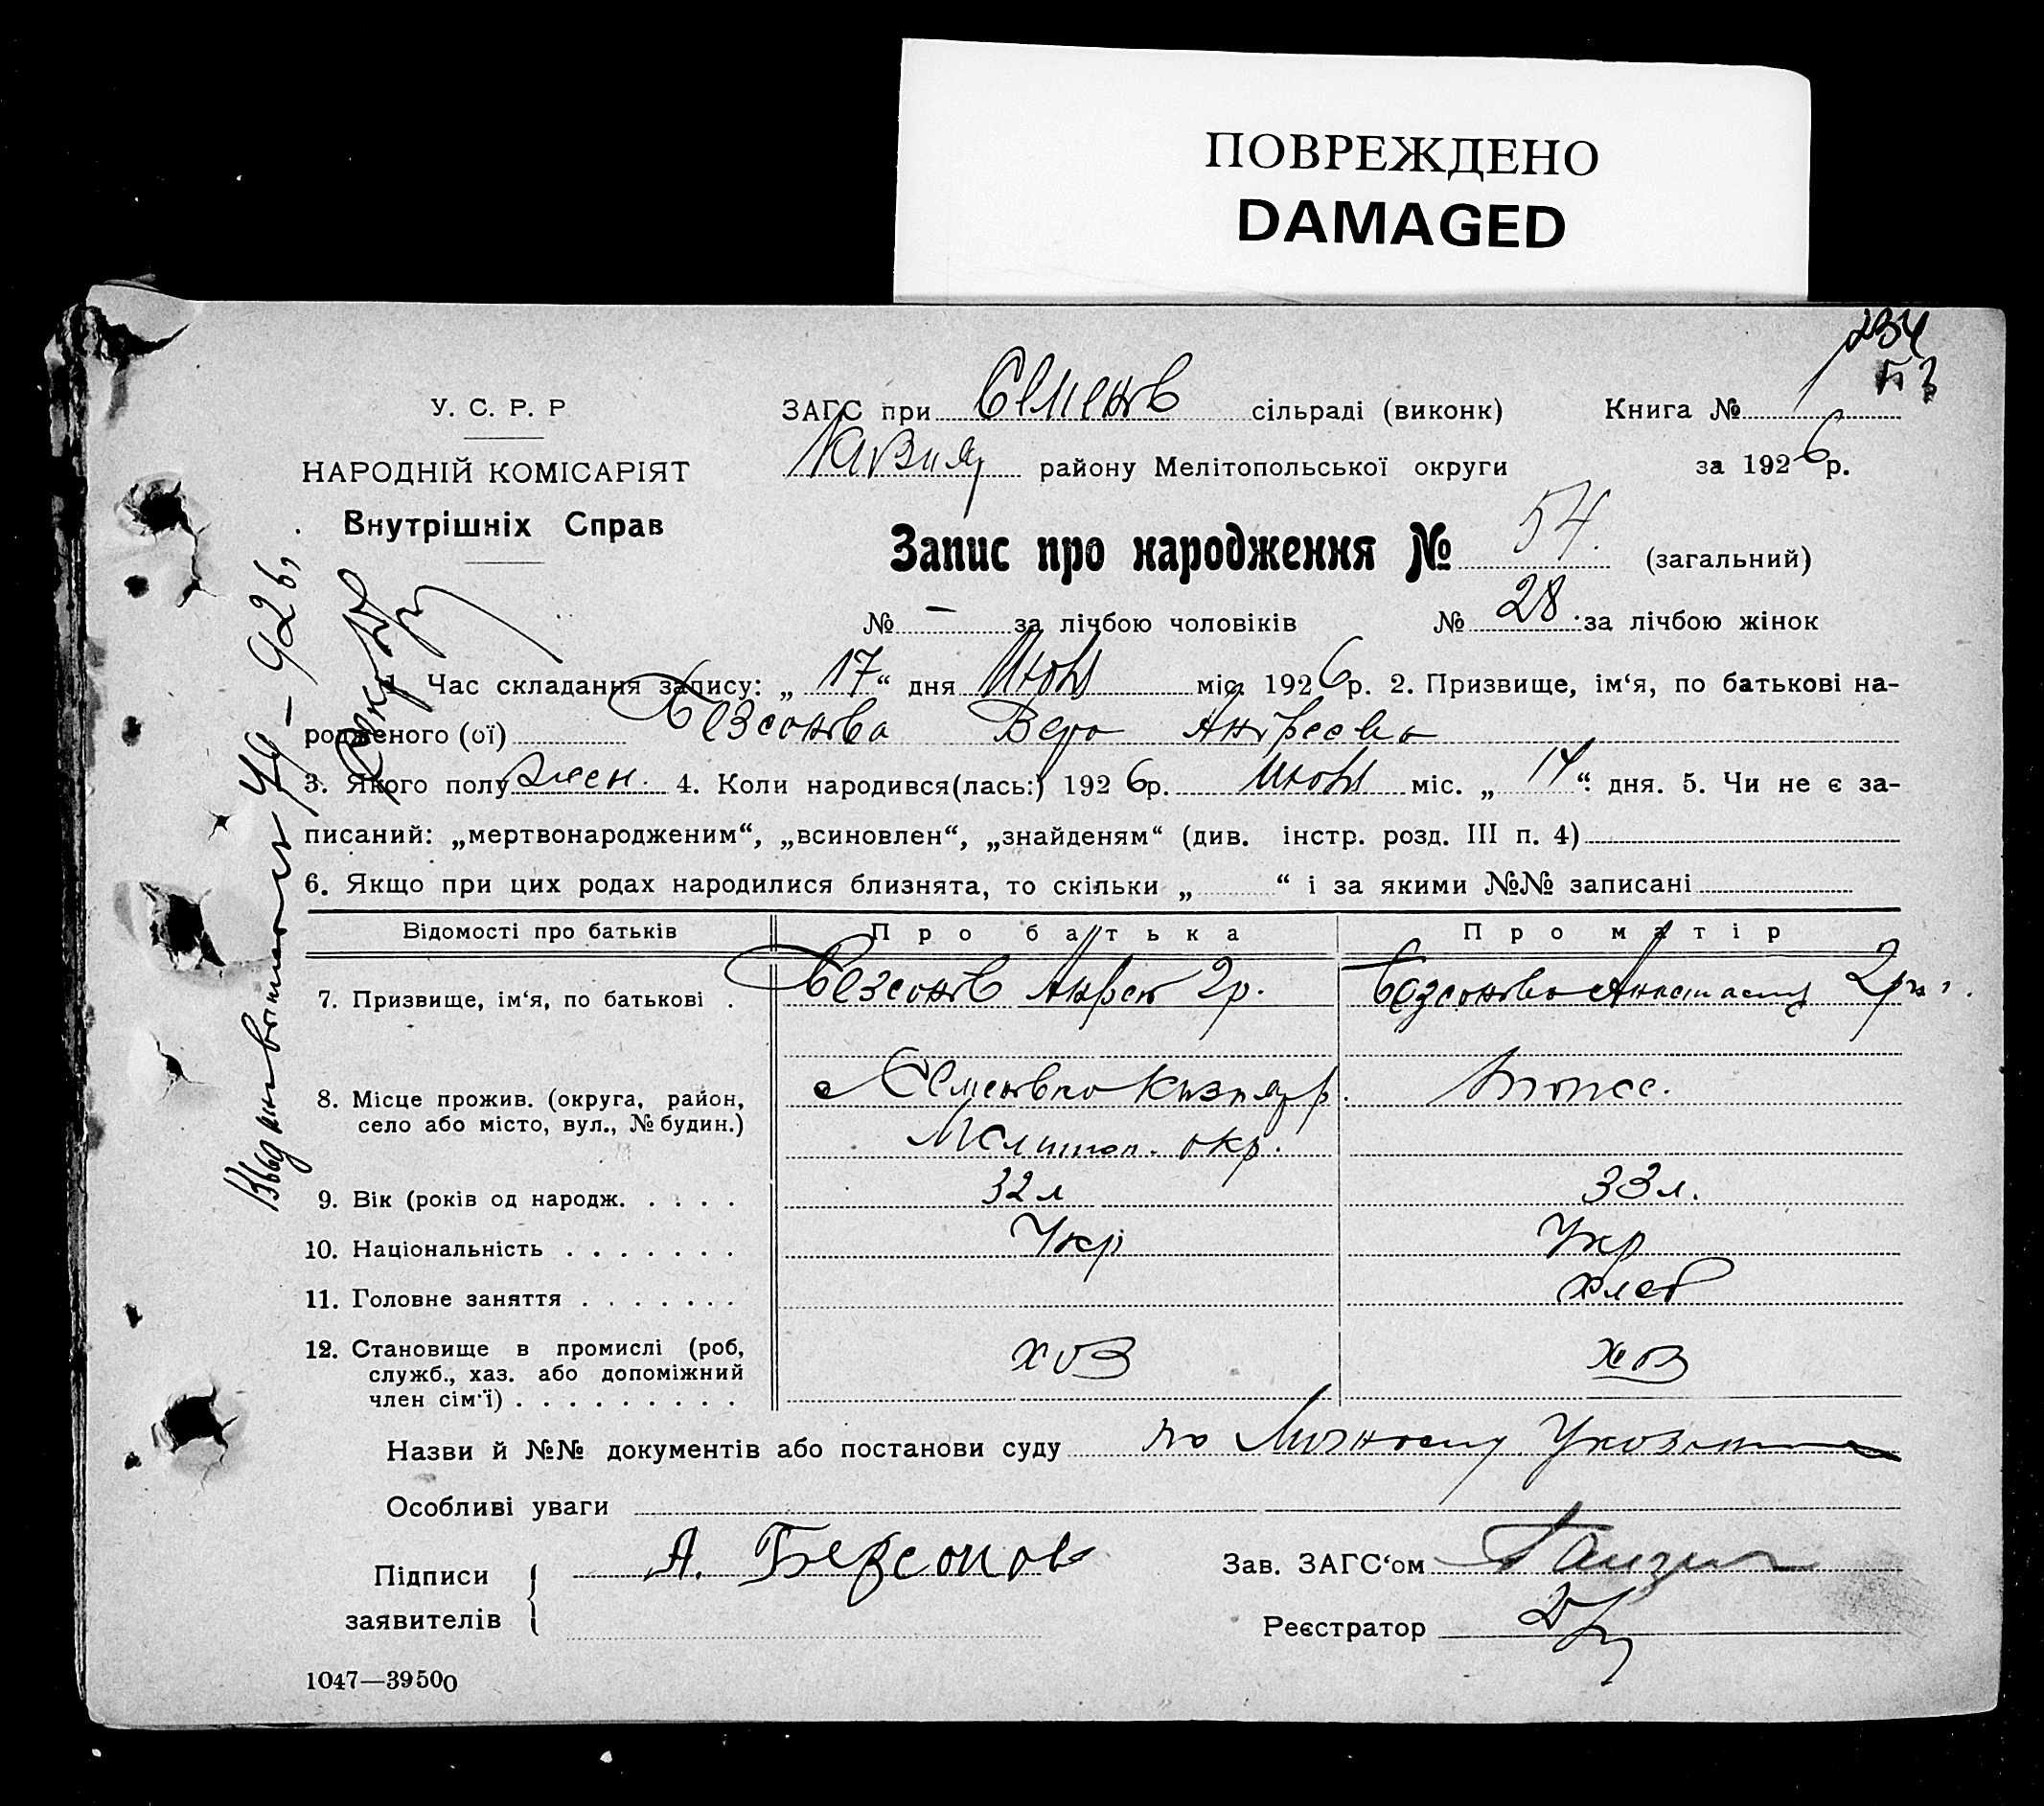 ПОВРЕЖДЕНО
DAMAGED
234
У. С. Р. Р
НАРОДНІЙ КОМІСАРІЯТ
Внутрішніх Справ
ЗАГС при Семенов сільраді (виконк) Книга №
району Мелітопольської округи за 1926р.
Запис про народження № 54. (загальний)
№ — за лічбою чоловіків № 28. за лічбою жінок
1. Час складання запису: „ 17 “ дня Июня міс. 1926р. 2. Призвище, ім‘я, по батькові на-
родженого (ої) Безсонова Вера Андреева
3. Якого полу жен. 4. Коли народився(лась:) 1926р. Июня міс. „ 14 “ дня. 5. Чи не є за-
писаний: „мертвонародженим“, „всиновлен“, „знайденям“ (див. інстр. розд. III п. 4)
6. Якщо при цих родах народилися близнята, то скільки „ “ і за якими №№ записані
Відомості про батьків Про батька Про матір
7. Призвище, ім‘я, по батькові . Безсонов Андрей 2р. Безсонова Анастасия
8. Місце прожив. (округа, район, село або місто, вул., № будин.) Семеновка Кизияр р.
Мелитоп. окр.
9. Вік (років од народж. . . . . 32 л 33 л.
10. Національність . . . . . . . Укр Укр
11. Головне заняття . . . . . . . хлеб
12. Становище в промислі (роб, служб., хаз. або допоміжний член сім'ї) . . . . . . . . . хоз хоз
Назви й №№ документів або постанови суду по Личному
Особливі уваги
Підписи заявителів А. Безсонов
Зав. ЗАГС‘ом
Реєстратор
1047—39500